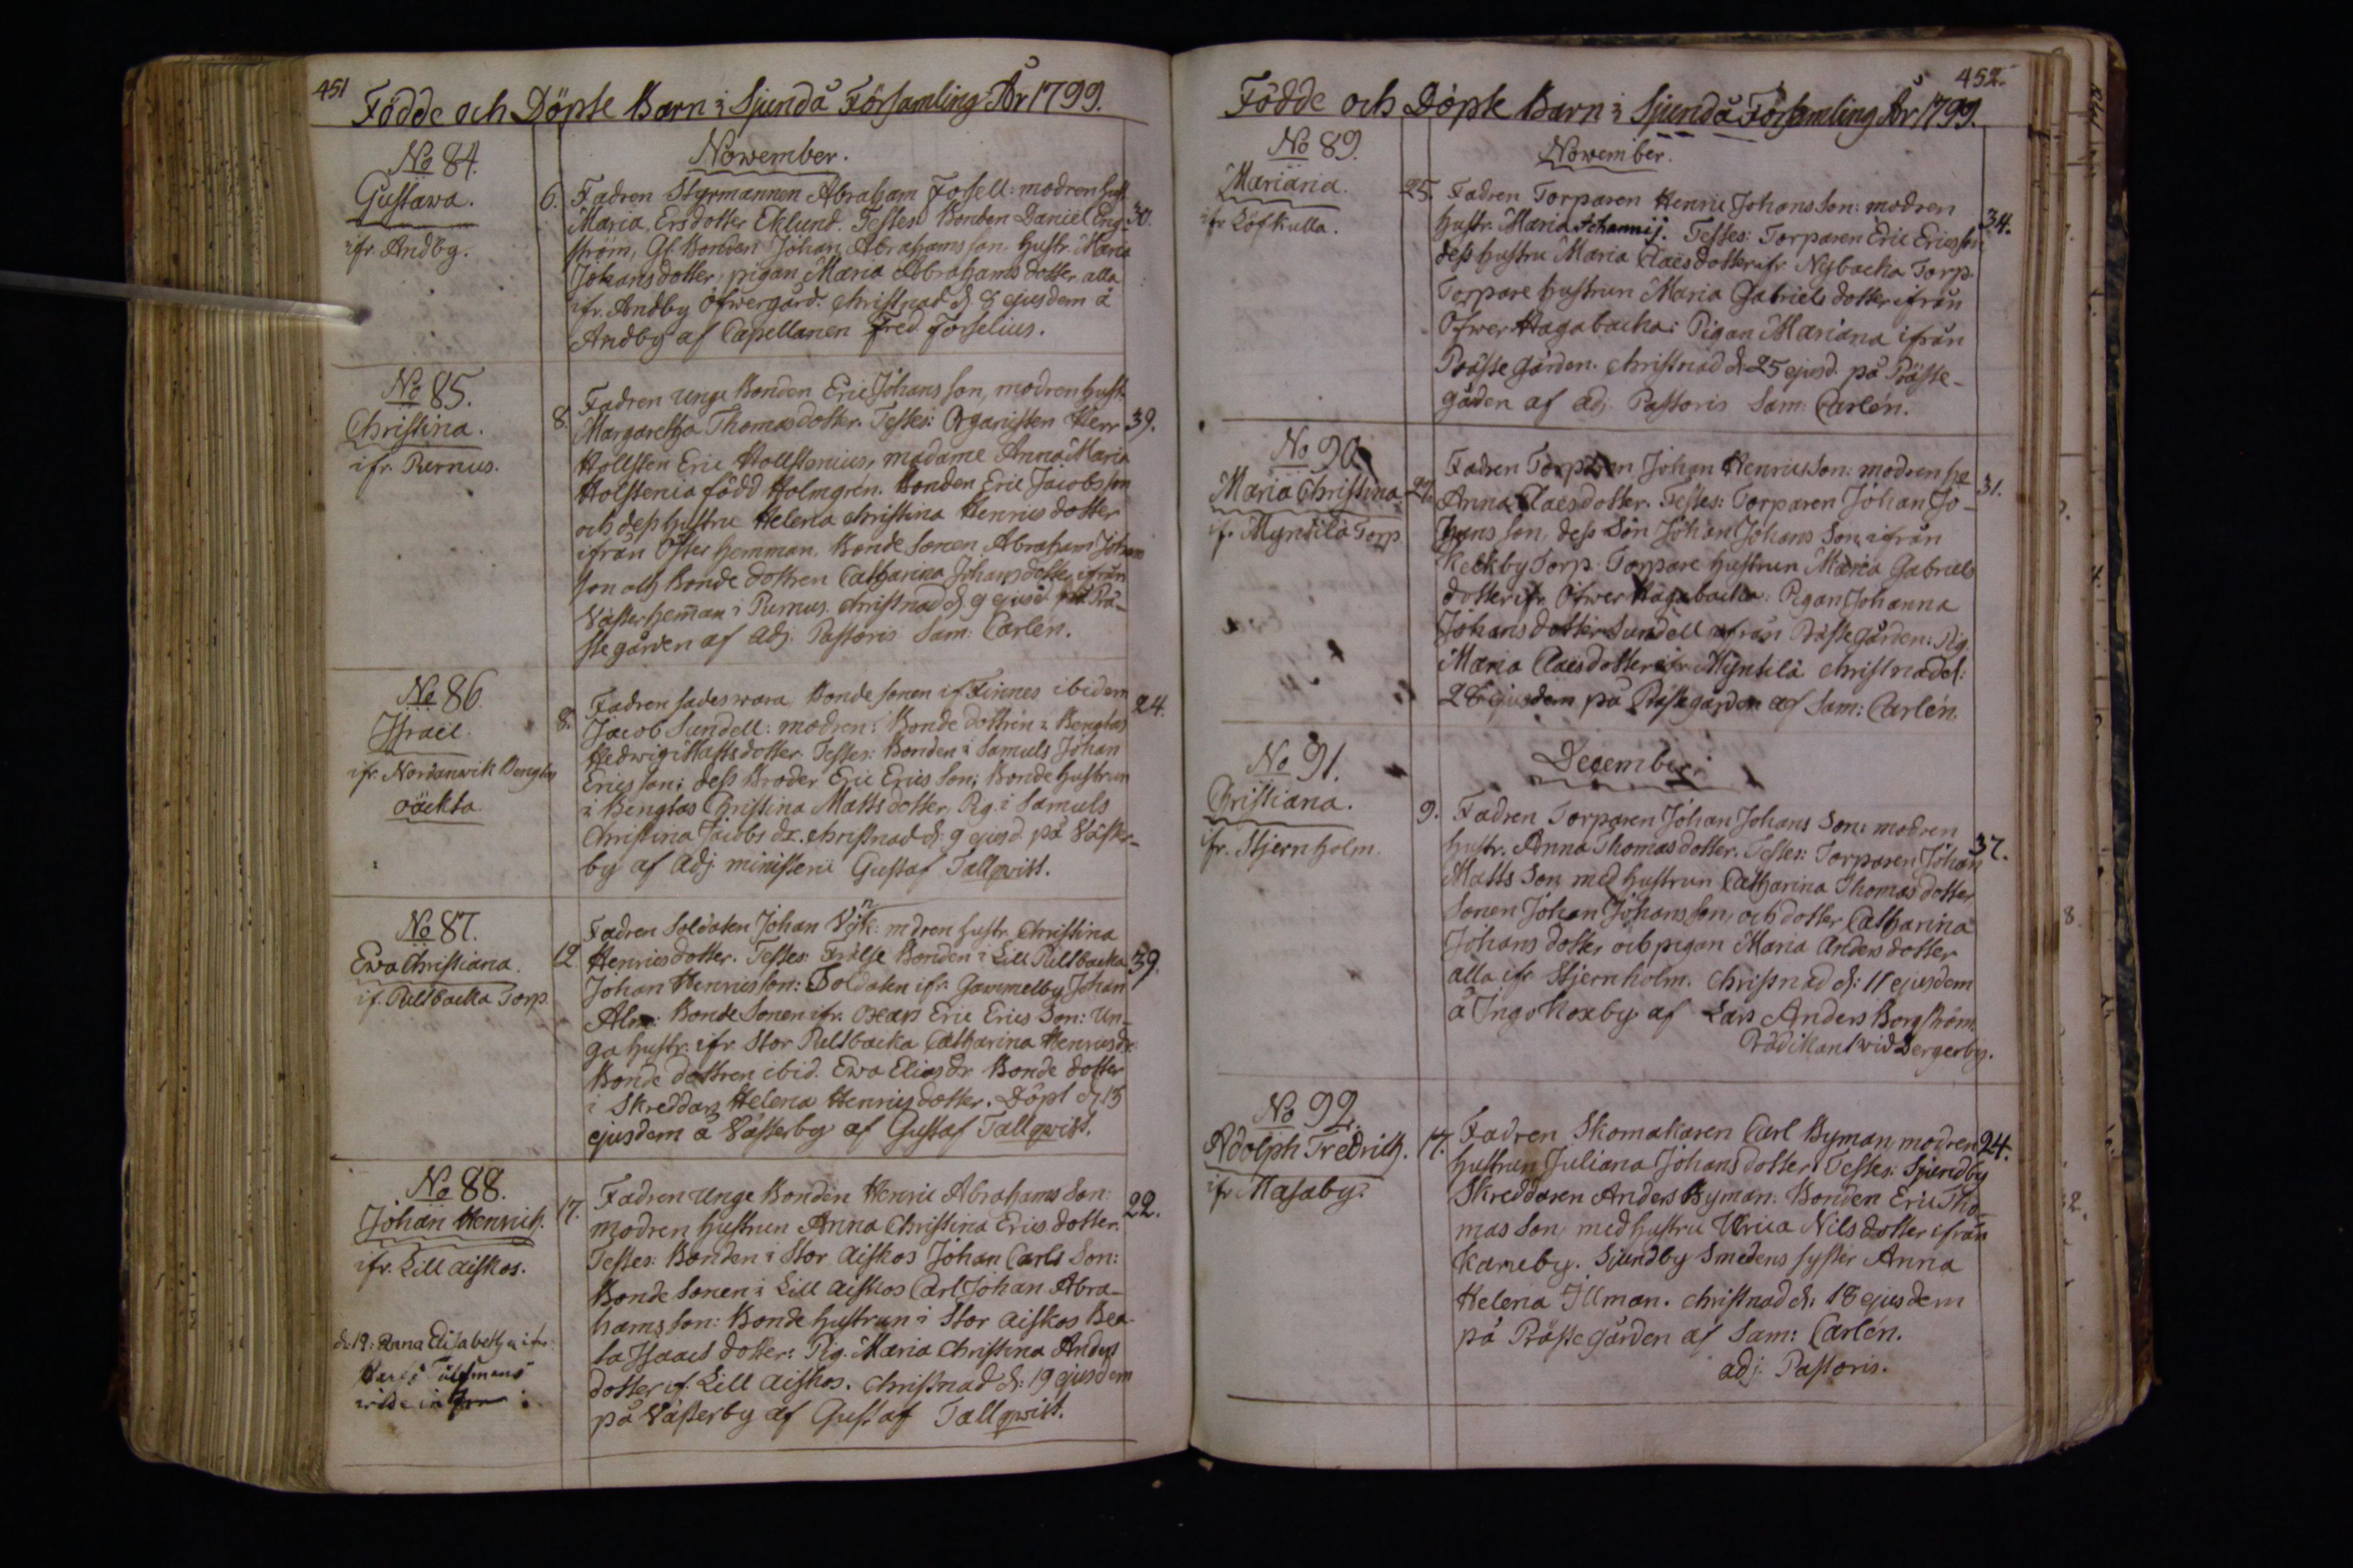 451
Födde och Döpte Barn i Sjundå Församling År 1799.
November.
No 84.
Gustava.
ifr. Andby.
6. Fadren Styrmannen Abraham Forsell: modren hust.
Maria Ersdotter Eklund. Testes Bonden Daniel Eng- 30.
ström, Gl. Bonden Johan Abrahamsson hustr. Maria
Johansdotter, pigan Maria Abrahams dotter alla
ifr. Andby Öfwergård. christnad d. 8 ejusdem å
Andby af Capellanen Fred. Forselius.
No 85.
Christina.
ifr. Purnus.
Fadren unge Bonden Eric Johans son, modren hust.
8. Margaretha Thomasdotter. Testes: Organisten Herr 39.
Hollsten Eric Hollstenius, madame Anna Maria
Holstenia född Holmgrén. Bonden Eric Jacobsson
och dess hustru Helena Christina Henrics dotter
ifrån Öfter hemman. Bonde Sonen Abraham Johans
son och Bonde dottren Catharina Johansdotter ifrån
Väster hem̄an i Purnus. christnad d. 9 ejusd. på Prä-
stegården af Adj. Pastoris Sam: Carlén.
No 86.
Israel.
ifr. Nordanwik Bengtas
oäckta
Fadren sades wara Bonde sonen if. Finnes ibidem
8. Jacob Sundell: modren: Bonde dottren i Bengtas 24.
Hedwig Mattsdotter. Testes: Bonden i Samuls Johan
Ericsson; dess Broder Eric Erics son; Bonde hustrun
i Bengtas Christina Matts dotter, Pig. i Samuls
Christina Jacobs dr. christnad d: 9 ejusd. på Väster-
by af Adj. ministerii Gustaf Tallqwist.
No 87.
Ewa Christiana.
if. Pellbacka Torp.
Fadren Soldaten Johan Vijk: mdren hustr. Christina
12. Henricsdotter. Testes: Frälse Bonden i Lill Pellbacka 39.
Johan Henricsson: Soldaten ifr. Gammelby Johan
Alm: Bonde Sonen ifr. Oxars Eric Erics Son: un-
ga hustr. ifr. Stor Pellbacka Catharina Henricsdr
Bonde dottren ibid. Ewa Elias dr Bonde dotter
i Skreddars Helena Henrics dotter. Döpt d. 13
ejusdem å Västerby af Gustaf Tallqwist.
No 88.
Johan Henrich.
ifr. Lill aiskos.
17. Fadren unge Bonden Henric Abrahams Son:
modren hustrun Anna Christina Erics dotter. 22.
Testes: Bonden i Stor aiskos Johan Carls Son:
Bonde Sonen i Lill aiskos Carl Johan Abra-
hams son: Bonde hustrun i Stor aiskos Bea-
ta Isaacs dotter: Pig. Maria Christina Anders
dotter if. Lill aiskos. christnad d: 19 ejusdem
på Västerby af Gustaf Tallqwist.
d: 19: Anna Elisabeth
452.
Födde och Döpte Barn i Sjundå Församling År 1799.
November.
No 89.
Mariana.
ifr Löfkulla.
25. Fadren Torparen Henric Johans son: modren
hustr. Maria Johannis. Testes: Torparen Eric Ericsson 34.
dess hustru Maria Claës dotter ifr. Nybacka Torp.
Torpare hustrun Maria Gabriels dotter ifrån
Öfwer Hagabacka: Pigan Mariana ifrån
Prästegården. christnad d: 25 ejusd. på Präste-
gården af adj. Pastoris Sam: Carlén.
No 90.
Maria Christina
if. Myntilä Torp
Fadren Torparen Johan Henricsson: modren he
27. Anna Claesdotter. Testes: Torparen Johan Jo- 31.
hans son, dess Son Johan Johans Son ifrån
Keckby Torp. Torpare hustrun Maria Gabriels
dotter ifr. Öfwer Hagabacka: Pigan Johanna
Johans dotter Sundell ifrån Prästegården: Pig.
Maria Claës dotter ifr. Myntilä christnad d:
28 ejusdem på Prästegården af Sam: Carlén.
December.
No 91.
Christiana.
ifr. Stjernholm.
9. Fadren Torparen Johan Johans Son: modren
hustr. Anna Thomas dotter. Testes: Torparen Johan 37.
Matts Son med hustrun Catharina Thomas dotter
Sonen Johan Johans son, och dotter Catharina
Johans dotter och pigan Maria Anders dotter
alla ifr. Stjernholm. christnad d: 11 ejusdem
å Ingvksxby af Lars Anders Borgström.
Prädikant wid Bergerby.
No 92.
Adolph Fredrich.
ifr Masaby.
17. Fadren Skomakaren Carl Byman, modren 24.
hustrun Juliana Johans dotter. Testes: Sjundby
Skreddaren Anders Byman. Bonden Eric Tho-
mas Son, med hustru Ulrica Nils dotter ifrån
Kareby. Sjundby Smedens syster Anna
Helena Illman. christnad d: 18 ejusdem
på Prästegården af Sam: Carlén.
adj. Pastoris.